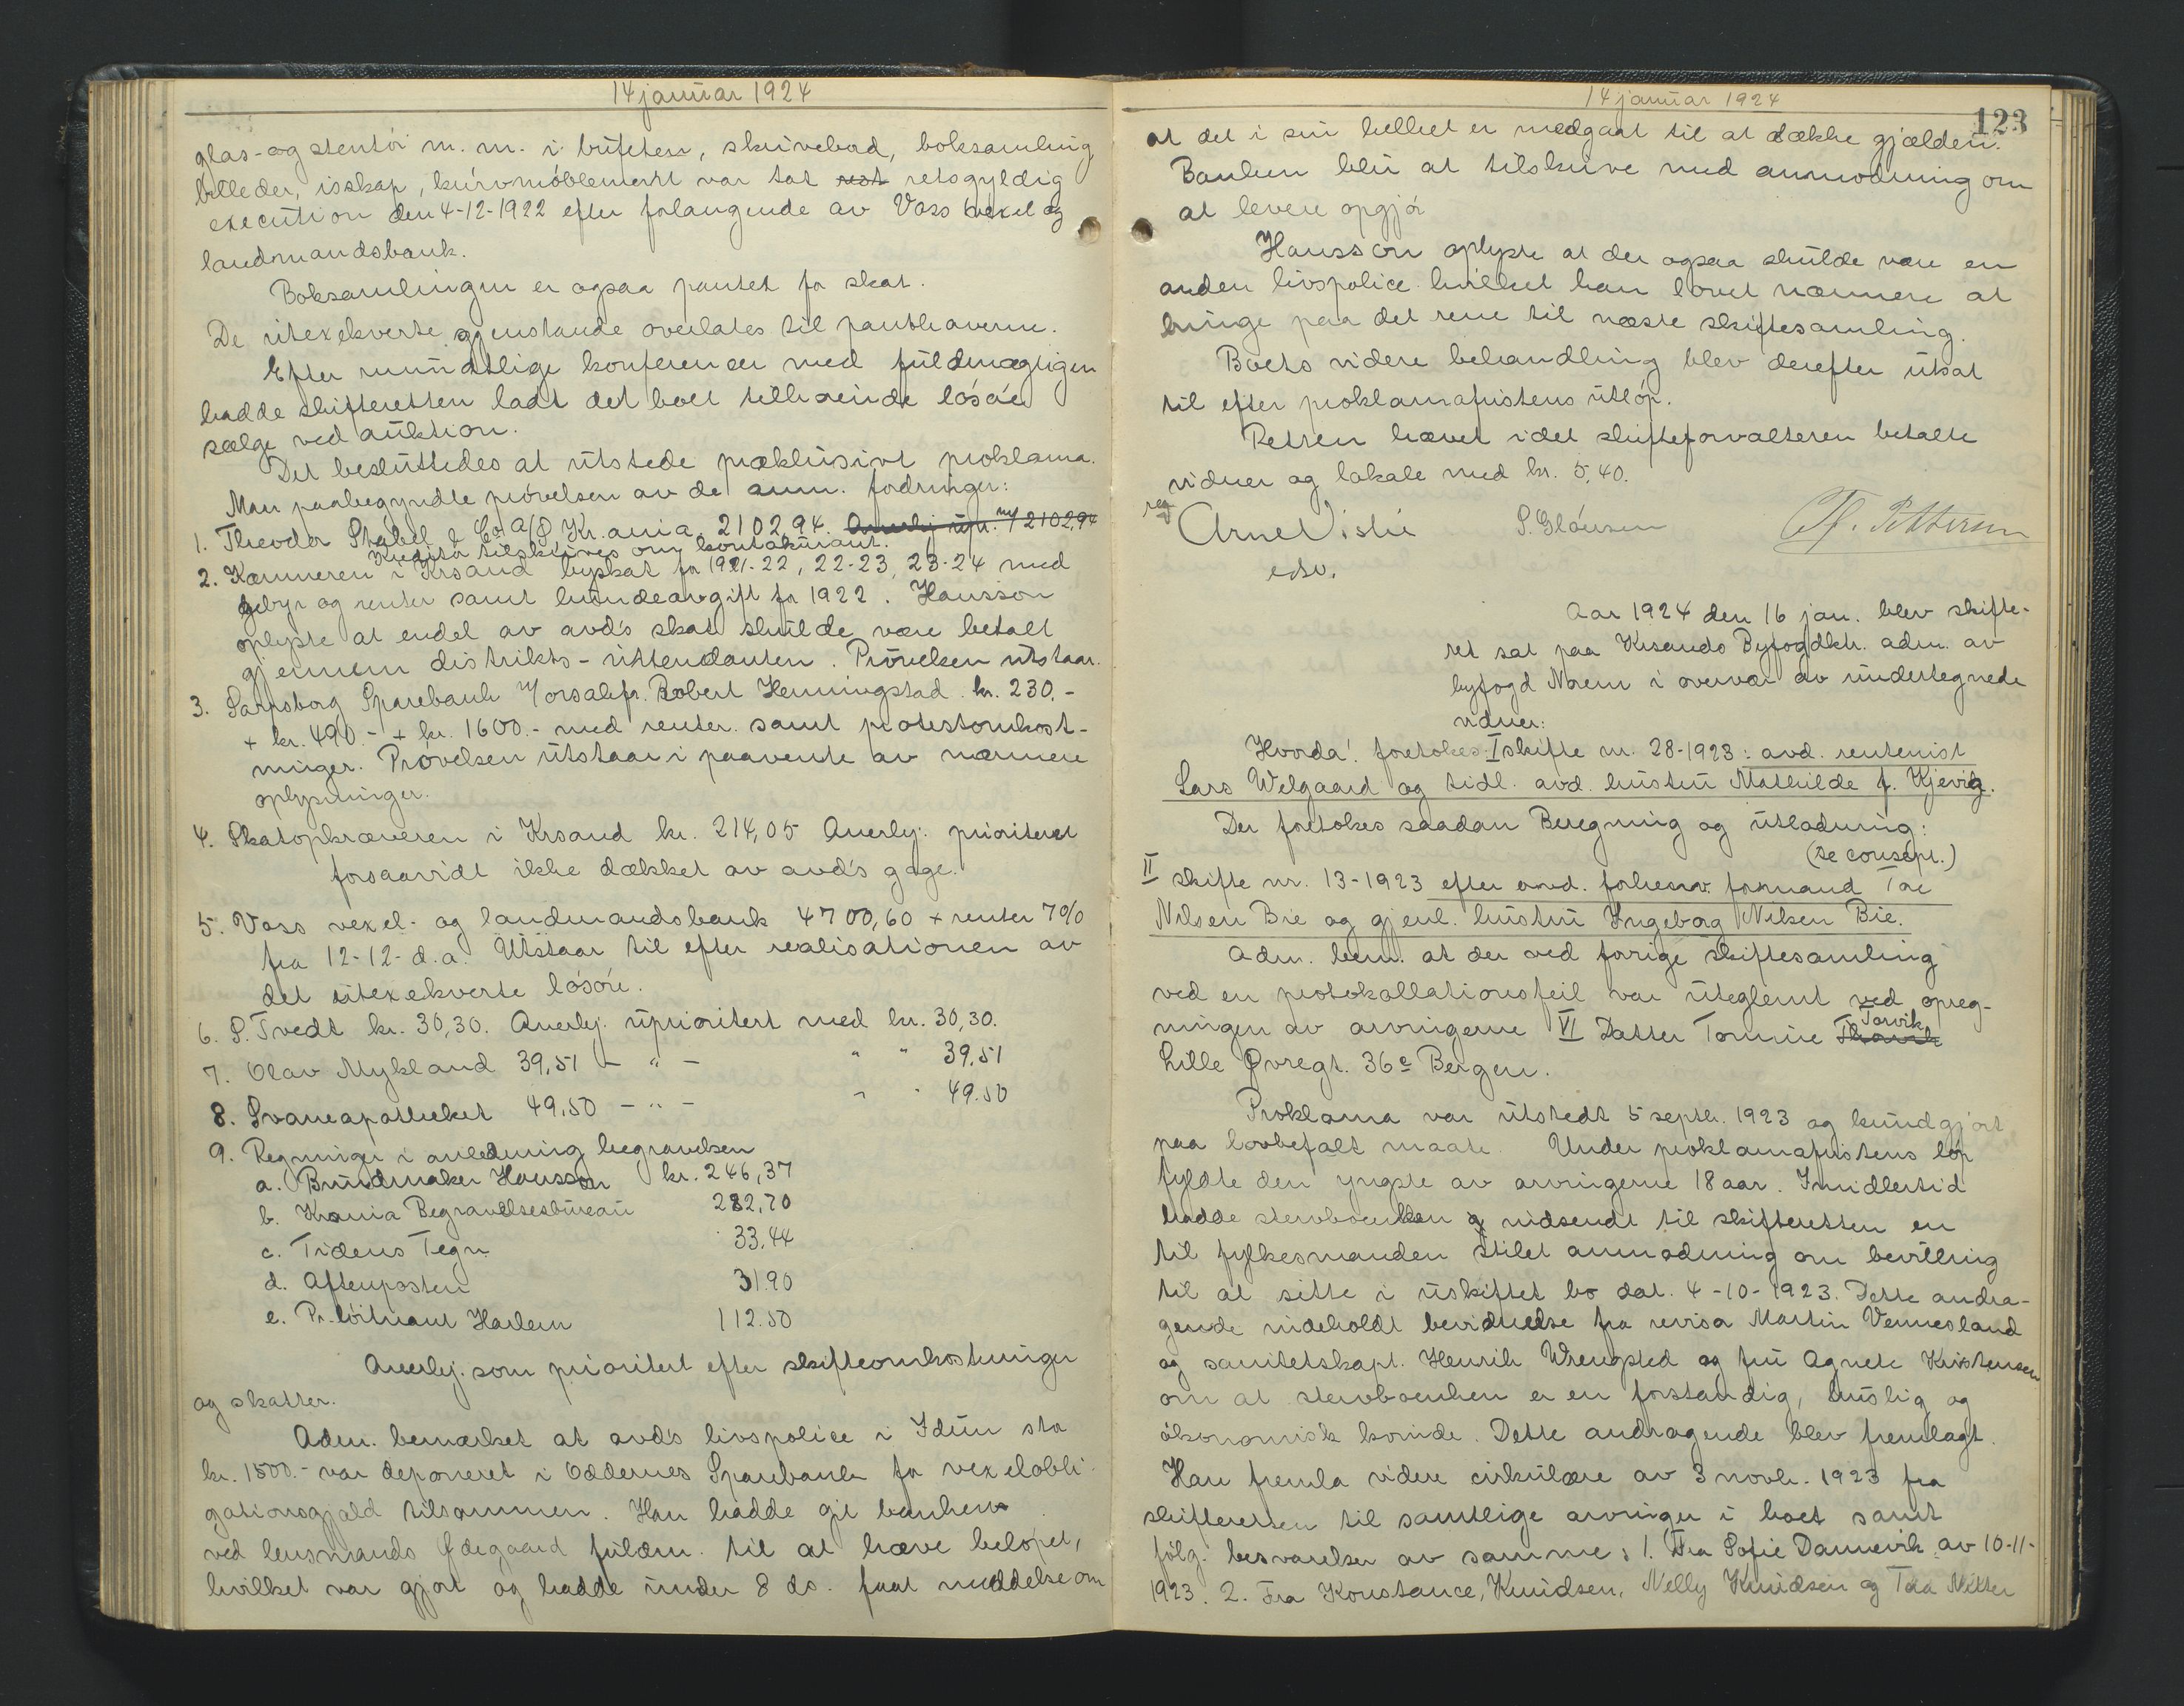 14 januar 1924
glas- og stentöi m. m. i büfeten, skrivebord, boksamling
billeder, isskap, kurvmöblement var tat rest retsgyldig
execution den 4-12-1922 efter forlangende av Voss vexel og
landmandsbank.
Boksamlingen er ogsaa pantet for skat.
De utexekverte gjenstande overlates til panthaverne.
Efter mundtlige konferencer med fuldmægtigen
hadde skifteretten ladt det boet tilhörende lösöre
sælge ved auktion.
Det besluttedes at utstede præklusivt proklama.
Man paabegyndte prövelsen av de anm. fordringer:
1. Theodor Stabel & Co A/S, Kr.ania, 2102,94. Anerkj. upr. m/ 2102,94
Kreditor tilskrives om kontokurant.
2. Kæmneren i Krsand byskat for 1921-22, 22-23, 23-24 med
gebyr og renter samt hundeavgift for 1922. Hansson
oplyste at endel av avd's skat skulde være betalt
gjennem distrikts-intendanten. Prövelsen utstaar.
3. Sarpsborg Sparebank v/ orsakfr. Robert Henningstad kr. 230,-
+ kr. 490.- + kr. 1600.- med renter samt protestomkost-
ninger. Prövelsen utstaar i paavente av nærmere
oplysninger.
4. Skatopkræveren i Krsand kr. 214,05 Anerkj. prioriteret
forsaavidt ikke dækket av avd's gage.
5. Voss vexel- og landmandsbank 4700,60 + renter 7%
fra 12-12- d.a. Utstaar til efter realisationen av
det utexekverte lösöre.
6. S. Tvedt kr. 30,30. Anerkj. uprioritert med kr. 30,30.
7. Olav Mykland 39,51 - " - " " 39,51
8. Svaneapotheket 49,50 - " - " " 49.50
9. Regninger i anledning begravelsen
a. Bundmaker Hansson kr. 246,37
b. Krania Begravelsesbureau 282,70
c. Tidens Tegn 33,44
d. Aftenposten 31.90
e. Pr.löitnant Harlem 112.50
Anerkj. som prioritert efter skifteomkostninger
og skatter.
Adm. bemærket at avd's livspolice i Idun sto
kr. 1500.- var deponeret i Oddernes Sparebank for vexelobli-
gationsgjæld tilsammen. Han hadde git banken
ved lensmands Ødegaard fuldm. til at hæve belöpet,
hvilket var gjort og hadde under 8 ds. faat meddelse om
14 januar 1924
123
at det i sin helhet er medgaat til at dække gjælden.
Banken blir at tilskrive med anmodning om
at levere opgjör
Hansson oplyste at der ogsaa skulde være en
anden livspolice hvilket han lovet nærmere at
bringe paa det rene til næste skiftesamling.
Boets videre behandling blev derefter utsat
til efter proklamafristens utlöp.
Retten hævet idet skifteforvalteren betalte
vidner og lokale med kr. 5,40.
Arne Vislie S. Glousen Th. Pettersen
edsv.
Aar 1924 den 16 jan. blev skifte-
ret sat paa Krsands Byfogdktr. adm. av
byfogd Norem i overvær av undertegnede
vidner:
Hvorda! foretokes: I skifte nr. 28-1923: avd. rentenist
Lars Welgaard og tidl. avd. hustru Mathilde f. Kjevig.
Der foretokes saadan Beregning og utlodning:
(se consept.)
II skifte nr. 13-1923 efter avd. forhenv. formand Tore
Nilsen Bie og gjenl. hustru Ingeborg Nilsen Bie.
Adm. bem. at der ved forrige skiftesamling
ved en protokollationsfeil var uteglemt ved opreg-
ningen av arvingerne VI Datter Tomine Torvik
Lille Øvregt. 36c Bergen.
Proklama var utstedt 5 septb. 1923 og kundgjort
paa lovbefalt maate. Under proklamafristens löp
fyldte den yngste av arvingerne 18 aar. Imidlertid
hadde stervboenken indsendt til skifteretten en
til fylkesmanden stilet anmodning om bevilling
til at sitte i uskiftet bo dat. 4-10-1923. Dette andra-
gende indeholdt bevidnelse fra revisor Martin Vennesland
og sanitetskapt. Henrik Wrengsted og fru Agnete Kristensen
om at stervboenken er en forstandig, huslig og
ökonomisk kvinde. Dette andragende blev fremlagt.
Han fremla videre cirkulære av 3 novb. 1923 fra
skifteretten til samtlige arvinger i boet samt
fölg. besvarelser av samme: 1. Fra Sofie Dannevik av 10-11-
1923. 2. Fra Konstance, Knudsen, Nelly Knudsen og Tora Netter